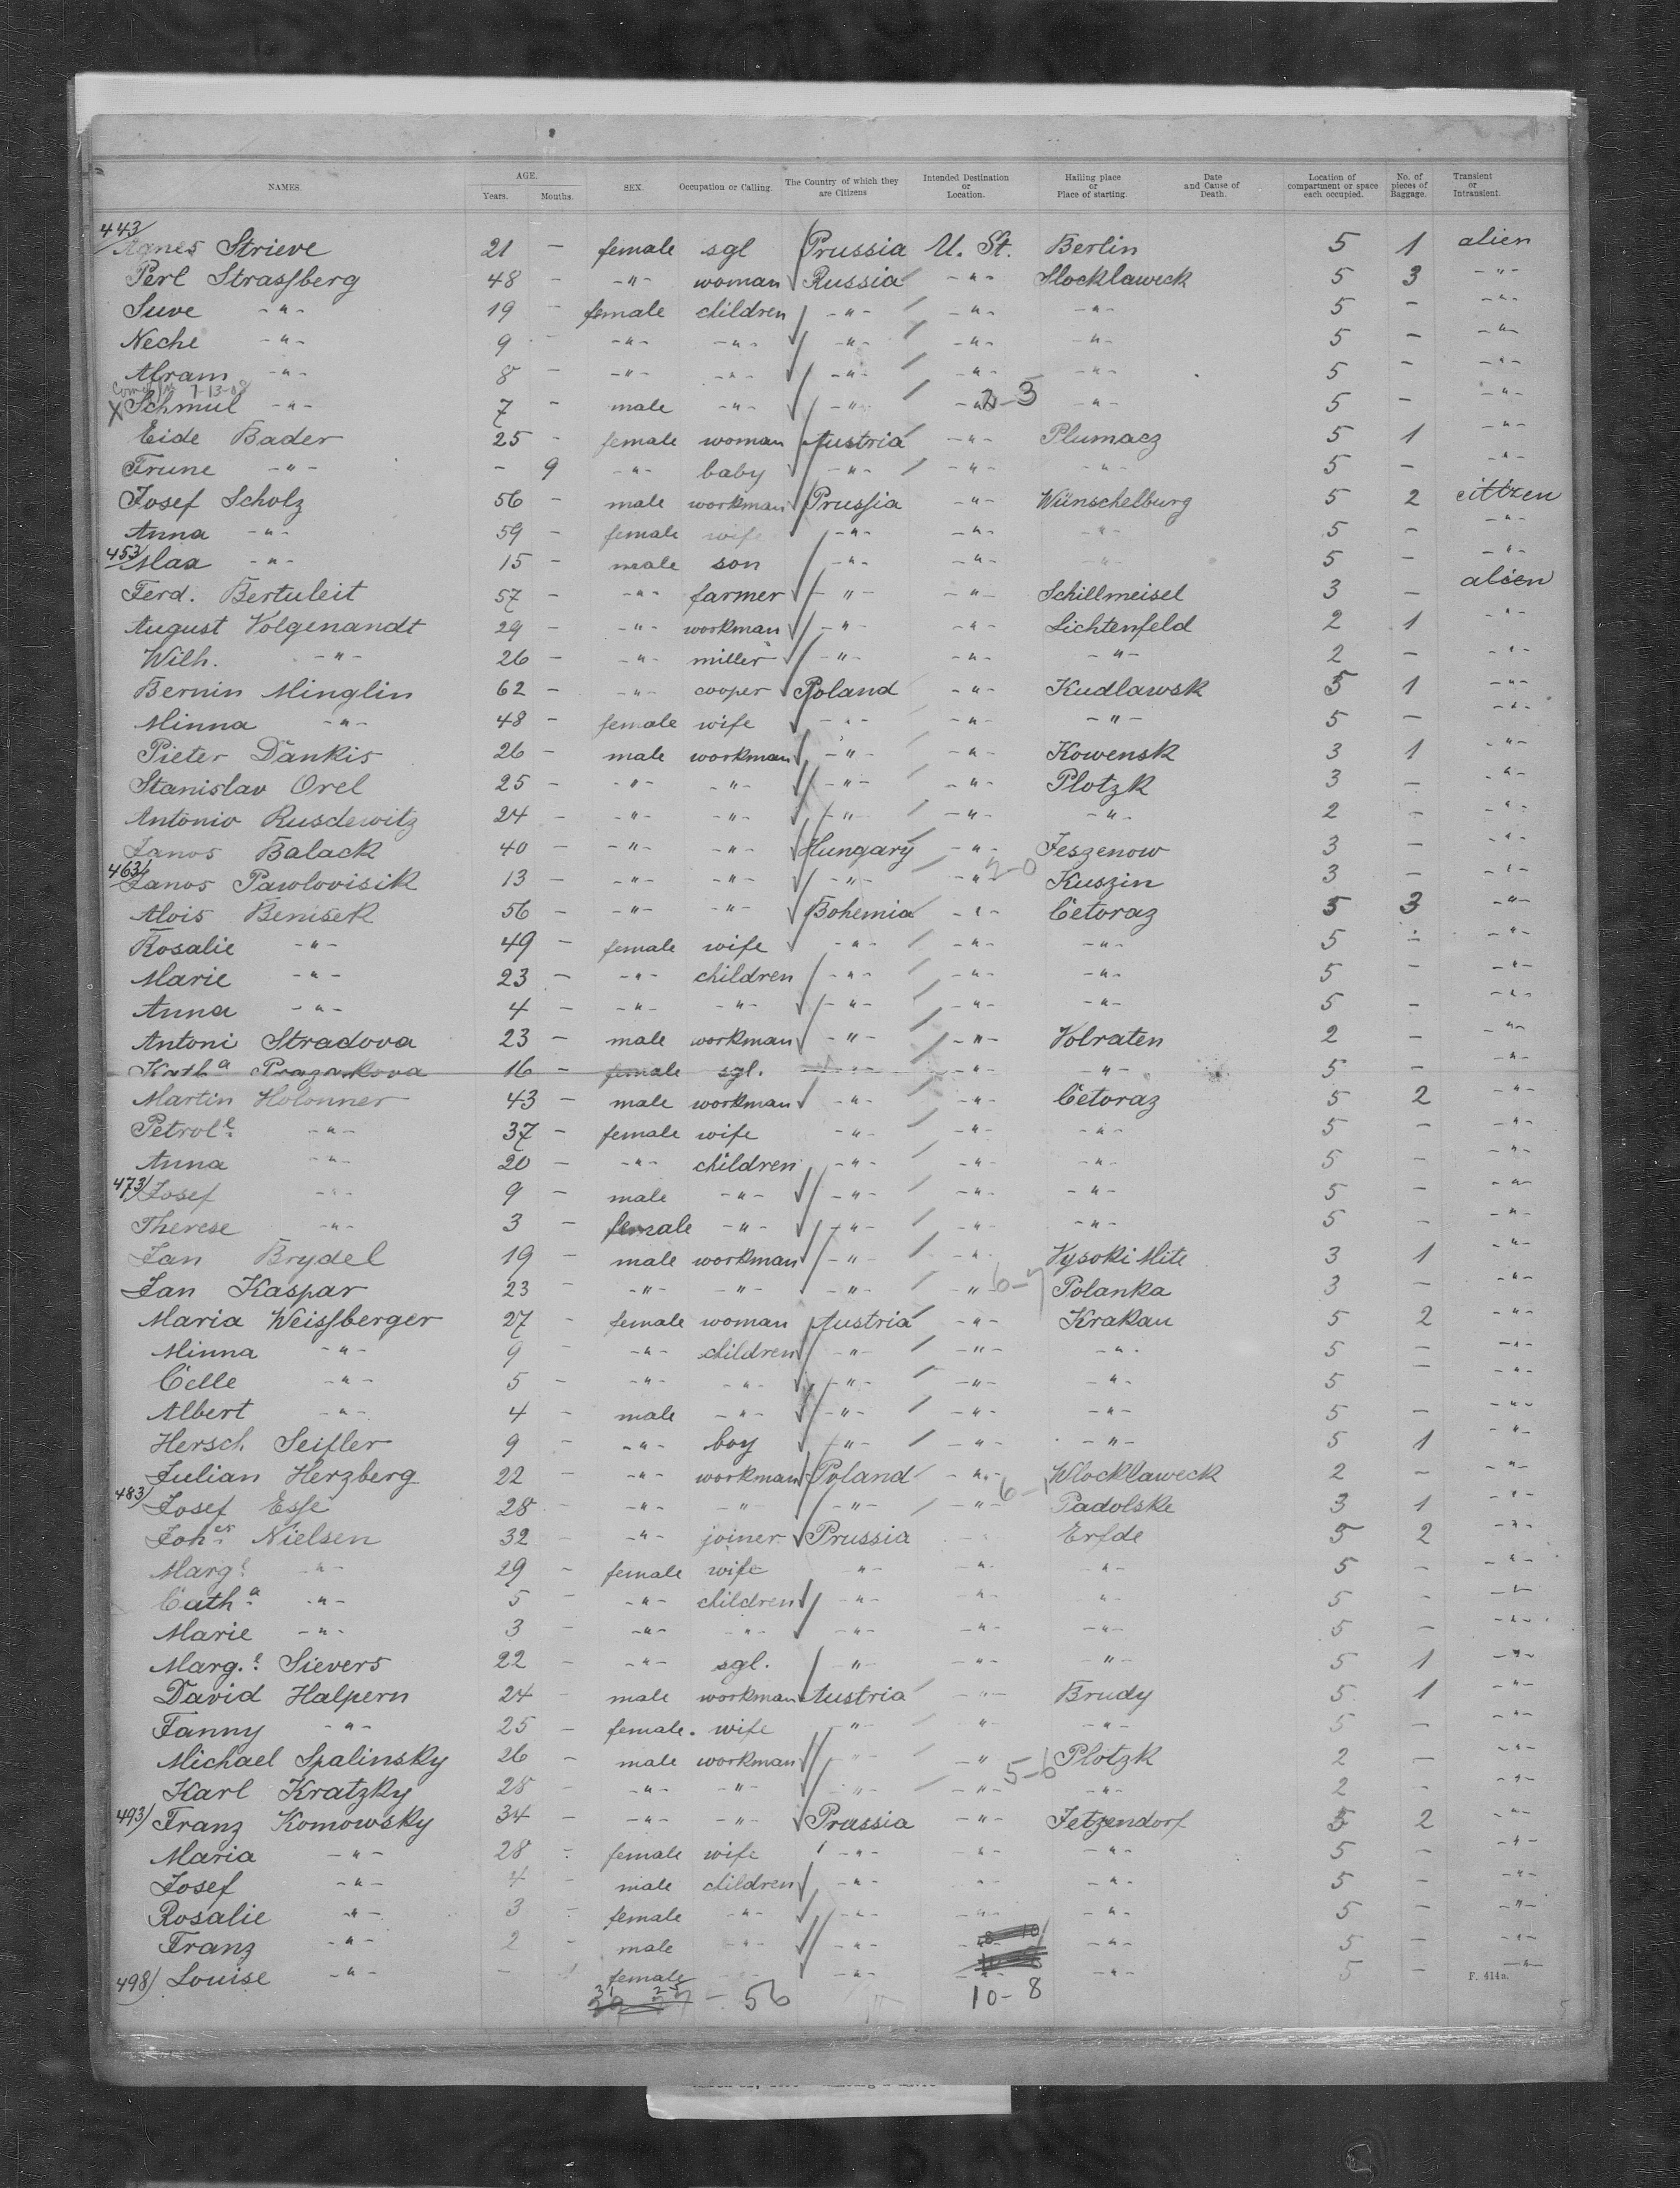 NAMES. AGE. Years. Months. SEX. Occupation or Calling. The Country of which they are Citizens Intended Destination or Location. Hailing place or Place of starting. Date and Cause of Death. Location of compartment or space each occupied. No. of pieces of Baggage. Transient or Intransient.
443/ Agnes Strieve 21 - female sgl Prussia U. St. Berlin 5 1 alien
Perl Strassberg 48 - -"- woman Russia -"- Slocklaweck 5 3 -"-
Suve -"- 19 - female children -"- -"- -"- 5 - -"-
Neche -"- 9 - -"- -"- -"- -"- -"- 5 - -"-
Abram -"- 8 - -"- -"- -"- -"- -"- 5 - -"-
7-13-08
X Schmul -"- 7 - male -"- -"- -"- 2-3 -"- 5 - -"-
Eide Bader 25 - female woman Austria -"- Plumacz 5 1 -"-
Frune -"- - 9 -"- baby -"- -"- -"- 5 - -"-
Josef Scholz 56 - male workman Prussia -"- Wünschelburg 5 2 citizen
Anna -"- 59 - female wife -"- -"- -"- 5 - -"-
453/ Max -"- 15 - male son -"- -"- -"- 5 - -"-
Ferd. Bertuleit 57 - -"- farmer -"- -"- Schillmeisel 3 - alien
August Volgenandt 29 - -"- workman -"- -"- Lichtenfeld 2 1 -"-
Wilh. -"- 26 - -"- miller -"- -"- -"- 2 - -"-
Bernin Minglin 62 - -"- cooper Poland -"- Kudlawsk 5 1 -"-
Minna -"- 48 - female wife -"- -"- -"- 5 - -"-
Pieter Dankis 26 - male workman -"- -"- Kowensk 3 1 -"-
Stanislav Orel 25 - -"- -"- -"- -"- Plotzk 3 - -"-
Antonio Rusdewitz 24 - -"- -"- -"- -"- -"- 2 - -"-
Janos Balack 40 - -"- -"- Hungary -"- Jeszenow 3 - -"-
463/ Janos Pawlovisik 13 - -"- -"- -"- -"- 2-0 Kuszin 3 - -"-
Alois Benisek 56 - -"- -"- Bohemia -"- Cetoraz 5 3 -"-
Rosalie -"- 49 - female wife -"- -"- -"- 5 - -"-
Marie -"- 23 - -"- children -"- -"- -"- 5 - -"-
Anna -"- 4 - -"- -"- -"- -"- -"- 5 - -"-
Antoni Stradova 23 - male workman -"- -"- Volraten 2 - -"-
Kathª Prazakova 16 - female sgl. -"- -"- -"- 5 - -"-
Martin Holonner 43 - male workman -"- -"- Cetoraz 5 2 -"-
Petrolᵉ -"- 37 - female wife -"- -"- -"- 5 - -"-
Anna -"- 20 - -"- children -"- -"- -"- 5 - -"-
473/ Josef -"- 9 - male -"- -"- -"- -"- 5 - -"-
Therese -"- 3 - female -"- -"- -"- -"- 5 - -"-
Jan Brydel 19 - male workman -"- -"- Vysoki Mite 3 1 -"-
Jan Kaspar 23 - -"- -"- -"- -"- 6-7 Polanka 3 - -"-
Maria Weissberger 27 - female woman Austria -"- Krakau 5 2 -"-
Minna -"- 9 - -"- children -"- -"- -"- 5 - -"-
Celle -"- 5 - -"- -"- -"- -"- -"- 5 - -"-
Albert -"- 4 - male -"- -"- -"- -"- 5 - -"-
Hersch Seifler 9 - -"- boy -"- -"- -"- 5 1 -"-
Julian Herzberg 22 - -"- workman Poland -"- 6-1 Wlocklaweck 2 - -"-
483/ Josef Esse 28 - -"- -"- -"- -"- Padolske 3 1 -"-
Johᵉˢ Nielsen 32 - -"- joiner Prussia -"- Erfde 5 2 -"-
Margᵉ -"- 29 - female wife -"- -"- -"- 5 - -"-
Cathª -"- 5 - -"- children -"- -"- -"- 5 - -"-
Marie -"- 3 - -"- -"- -"- -"- -"- 5 - -"-
Marg.ᵉ Sievers 22 - -"- sgl. -"- -"- -"- 5 1 -"-
David Halpern 24 - male workman Austria -"- Brudy 5 1 -"-
Fanny -"- 25 - female. wife -"- -"- -"- 5 - -"-
Michael Spalinsky 26 - male workman -"- -"- 5-6 Plotzk 2 - -"-
Karl Kratzky 28 - -"- -"- -"- -"- -"- 2 - -"-
493/ Franz Komowsky 34 - -"- -"- Prussia -"- Jetzendorf 5 2 -"-
Maria -"- 28 - female wife -"- -"- -"- 5 - -"-
Josef -"- 4 - male children -"- -"- -"- 5 - -"-
Rosalie -"- 3 - female -"- -"- -"- -"- 5 - -"-
Franz -"- 2 - male -"- -"- -"- -"- 5 - -"-
498/ Louise -"- - female -"- -"- -"- -"- 5 - -"-
F. 414a.
31 25 - 56 10-8